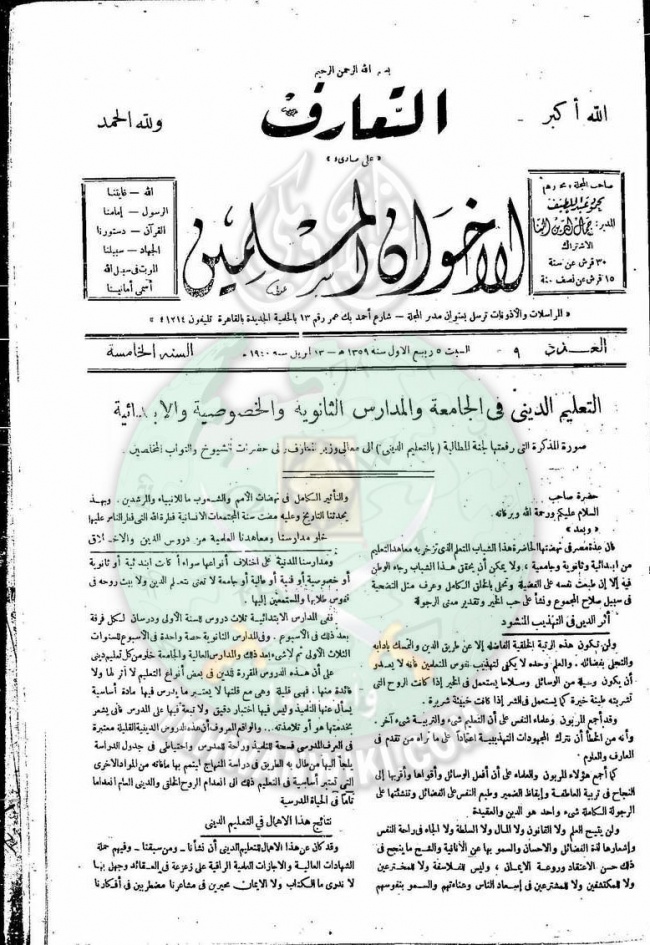 بسم الله الرحمن الرحيم
الله أكبر
التعارف
ولله الحمد
« على مبادىء »
الاخوان المسلمين
الله — غايتنا
الرسول — إمامنا
القرآن — دستورنا
الجهاد — سبيلنا
الموت فى سبيل الله
أسمى أمانينا
الاشتراك
٣٠ قرش عن سنة
١٥ قرش عن نصف سنة
« المراسلات والأذونات ترسل بعنوان مدير المجلة — شارع أحمد بك عمر رقم ١٣ بالحلمية الجديدة بالقاهرة تليفون »
العدد ٩
السبت ٥ ربيع الاول سنة ١٣٥٩ هـ — ١٣ ابريل سنة ١٩٤٠ م
السنة الخامسة
التعليم الدينى فى الجامعة والمدارس الثانوية والخصوصية والابتدائية
صورة المذكرة التى رفعتها لجنة المطالبة ( بالتعليم الدينى ) الى معالى وزير المعارف والى حضرات الشيوخ والنواب المخلصين .
حضرة صاحب
السلام عليكم ورحمة الله وبركاته .
« وبعد »
فان عدة مصر فى نهضتها الحاضرة هذا الشباب المتعلم الذى تزخر به معاهد التعليم
من ابتدائية وثانوية وجامعية ، ولا يمكن أن يحقق هذا الشباب رجاء الوطن
فيه إلا إن طبعت نفسه على الفضيلة وتحلى بالخلق الكامل وعرف مثل التضحية
فى سبيل صلاح المجموع ونشأ على حب الخير وتقدير معنى الرجولة
أثر الدين فى التهذيب المنشود
ولن يتكون هذه التربية الخلقية الفاضلة إلا عن طريق الدين والتمسك بآدابه
والتحلى بفضائله . والعلم وحده لا يكفى لتهذيب نفوس المتعلمين فأنه لا يعدو
أن يكون وسيلة من الوسائل وسلاحا يستعمل فى الخير إذا كانت الروح التى
تشربته طيبة خيرة كما يستعمل فى الشر إذا كانت خبيثة شريرة .
وقد أجمع المربون وعلماء النفس على أن التعليم شىء والتربية شىء آخر .
وأنه من الخطأ أن نترك المجهودات التهذيبية اعتمادا على ما نراه من تقدم فى
المعارف والعلوم
كما أجمع هؤلاء المربون والعلماء على أن أفضل الوسائل وأقواها وأقربها إلى
النجاح فى تربية العاطفة وإيقاظ الضمير وطبع النفس على الفضائل وتنشئتها على
الرجولة الكاملة شىء واحد هو الدين والعقيدة
ولن يتيح العلم ولا القانون ولا المال ولا السلطة ولا الجاه فى راحة النفس
وإشعارها لذة الفضائل والاحسان والسمو بها عن الأنانية والشح ما ينجح فى
ذلك حسن الاعتقاد وروعة الايمان ، وليس الفلاسفة ولا المخترعين
ولا المكتشفين ولا المشترعين فى إسعاد الناس وهناءتهم والسمو بنفوسهم
والتأثير الكامل فى نهضات الأمم والشعوب ما للأنبياء والمرشدين . وبهذا
يحدثنا التاريخ وعليه مضت سنة المجتمعات الانسانية فطرة الله التى فطر الناس عليها
خلو مدارسنا ومعاهدنا العلمية من دروس الدين والاخلاق
ومدارسنا المدنية على اختلاف أنواعها سواء أكانت ابتدائية أو ثانوية
أو خصوصية أو فنية أو عالية أو جامعة لا تعنى بتعاليم الدين ولا ببث روحه فى
نفوس طلابها والمستمعين إليها .
ففى المدارس الابتدائية ثلاث دروس للسنة الأولى ودرسان لكل فرقة
بعد ذلك فى الأسبوع . وفى المدارس الثانوية حصة واحدة فى الأسبوع للسنوات
الثلاث الأولى ثم لا شىء بعد ذلك والمدارس العالية والجامعة خلو من كل تعليم دينى
على أن هذه الدروس المقررة للدين فى بعض أنواع التعليم لا أثر لها ولا
فائدة منها . فهى قليلة وهى مع قلتها لا يعتبر ما يدرس فيها مادة أساسية
يسأل عنها التلميذ وليس فيها اختبار دقيق ولا تبعة فيها على المدرس فأنى يشعر
بخدمتها هو أو تلامذته ... والواقع المعروف أن هذه الدروس الدينية القليلة معتبرة
فى العرف المدرسى فسحة للتلميذ وراحة للمدرس واحتياطى فى جدول الدراسة
يلجأ اليها من طال به الطريق فى دراسة المنهاج ليتمم بها ما فاته من المواد الاخرى
التى تعتبر أساسية فى التعليم ذلك الى انعدام الروح الخلقى والدينى العام انعداما
تاما فى الحياة المدرسية
نتائج هذا الاهمال فى التعليم الدينى
وقد كان عن هذا الاهمال للتعليم الدينى أن نشأنا - ومن سبقتنا - وفيهم حملة
الشهادات العالية والاجازات العلمية الراقية على زعزعة فى العقائد وجهل بها
لا ندرى ما الكتاب ولا الايمان محيرين فى مشاعرنا مضطربين فى أفكارنا